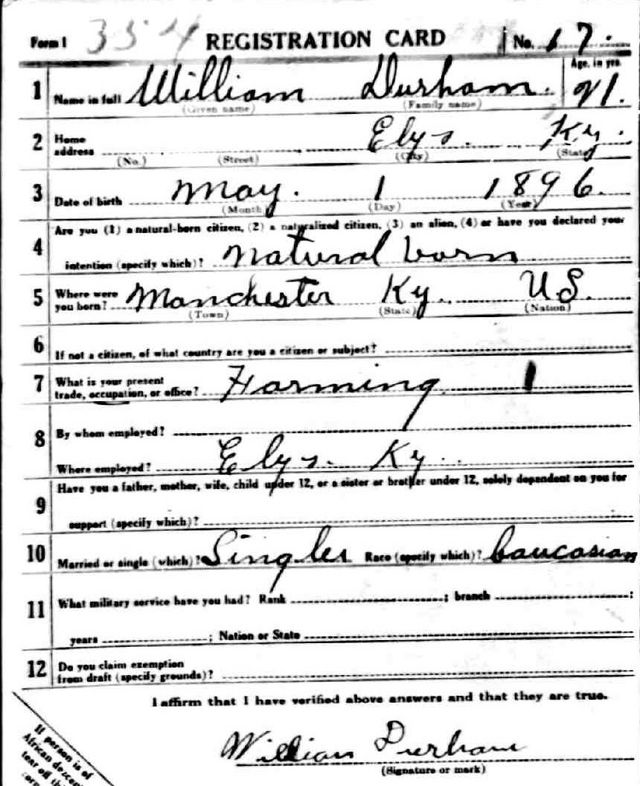 Form 1 354 REGISTRATION CARD No. 17.
1 Name in full William Durham. Age, in yrs. 21.
(Given name) (Family name)
2 Home address Elys. Ky.
(No.) (Street) (City) (State)
3 Date of birth May. 1 1896.
(Month) (Day) (Year)
4 Are you (1) a natural-born citizen, (2) a naturalized citizen, (3) an alien, (4) or have you declared your
intention (specify which)? natural born
5 Where were you born? Manchester Ky. US.
(Town) (State) (Nation)
6 If not a citizen, of what country are you a citizen or subject?
7 What is your present trade, occupation, or office? Farming 1
8 By whom employed?
Where employed? Elys. Ky.
9 Have you a father, mother, wife, child under 12, or a sister or brother under 12, solely dependent on you for
support (specify which)?
10 Married or single (which)? Single Race (specify which)? Caucasian
11 What military service have you had? Rank ; branch ;
years ; Nation or State
12 Do you claim exemption
from draft (specify grounds)?
I affirm that I have verified above answers and that they are true.
William Durham
(Signature or mark)
If person is of
African descent
tear off this